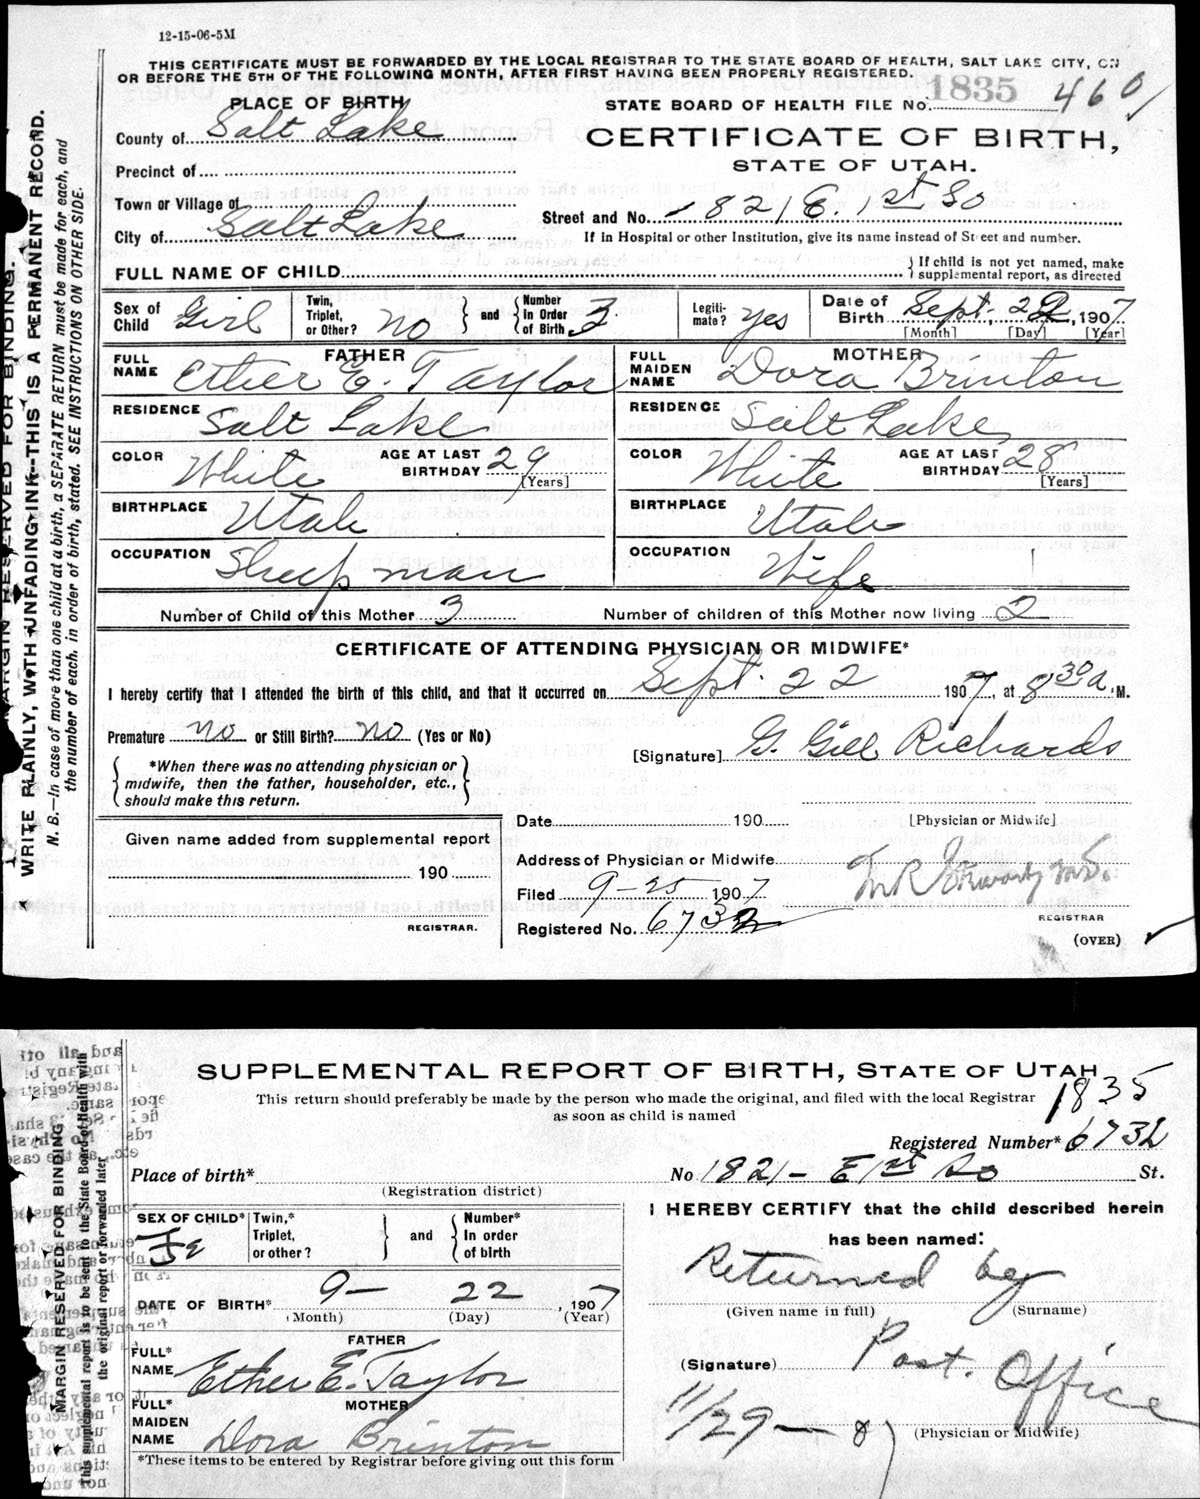 12-15-06-5M
THIS CERTIFICATE MUST BE FORWARDED BY THE LOCAL REGISTRAR TO THE STATE BOARD OF HEALTH, SALT LAKE CITY, ON
OR BEFORE THE 5TH OF THE FOLLOWING MONTH, AFTER FIRST HAVING BEEN PROPERLY REGISTERED.
WRITE PLAINLY, WITH UNFADING INK--THIS IS A PERMANENT RECORD.
N. B.—In case of more than one child at a birth, a SEPARATE RETURN must be made for each, and
the number of each, in order of birth, stated. SEE INSTRUCTIONS ON OTHER SIDE.
MARGIN RESERVED FOR BINDING.
PLACE OF BIRTH
County of Salt Lake
Precinct of
Town or Village of
City of Salt Lake
STATE BOARD OF HEALTH FILE No. 1835 460
CERTIFICATE OF BIRTH,
STATE OF UTAH.
Street and No. 1821 E. 1st So
If in Hospital or other Institution, give its name instead of Street and number.
FULL NAME OF CHILD
If child is not yet named, make
supplemental report, as directed
Sex of Child Girl
Twin, Triplet, or Other? no
and
Number In Order of Birth 3
Legitimate? yes
Date of Birth Sept. 22, 1907
[Month] [Day] [Year]
FATHER
FULL NAME Ether E. Taylor
RESIDENCE Salt Lake
COLOR White AGE AT LAST BIRTHDAY 29 [Years]
BIRTHPLACE Utah
OCCUPATION Sheep man
MOTHER
FULL MAIDEN NAME Dora Brinton
RESIDENCE Salt Lake
COLOR White AGE AT LAST BIRTHDAY 28 [Years]
BIRTHPLACE Utah
OCCUPATION Wife
Number of Child of this Mother 3 Number of children of this Mother now living 2
CERTIFICATE OF ATTENDING PHYSICIAN OR MIDWIFE*
I hereby certify that I attended the birth of this child, and that it occurred on Sept. 22 1907, at 8 30 a. M.
Premature no or Still Birth? no (Yes or No)
*When there was no attending physician or
midwife, then the father, householder, etc.,
should make this return.
[Signature] G. Gill Richards
[Physician or Midwife]
Given name added from supplemental report
190
REGISTRAR.
Date 190
Address of Physician or Midwife
Filed 9-25 1907
Registered No. 6732
REGISTRAR
(OVER)
SUPPLEMENTAL REPORT OF BIRTH, STATE OF UTAH
This return should preferably be made by the person who made the original, and filed with the local Registrar
as soon as child is named
1835
Registered Number* 6732
MARGIN RESERVED FOR BINDING
This supplemental report is to be sent to the State Board of Health with
the original report or forwarded later
Place of birth* No 1821- E 1st So St.
(Registration district)
SEX OF CHILD* Fe
Twin,* Triplet, or other?
and
Number* In order of birth
DATE OF BIRTH* 9- 22, 1907
(Month) (Day) (Year)
FATHER
FULL* NAME Ether E. Taylor
MOTHER
FULL* MAIDEN NAME Dora Brinton
*These items to be entered by Registrar before giving out this form
I HEREBY CERTIFY that the child described herein
has been named:
Returned by
(Given name in full) (Surname)
(Signature) Post. Office
11/29-07
(Physician or Midwife)